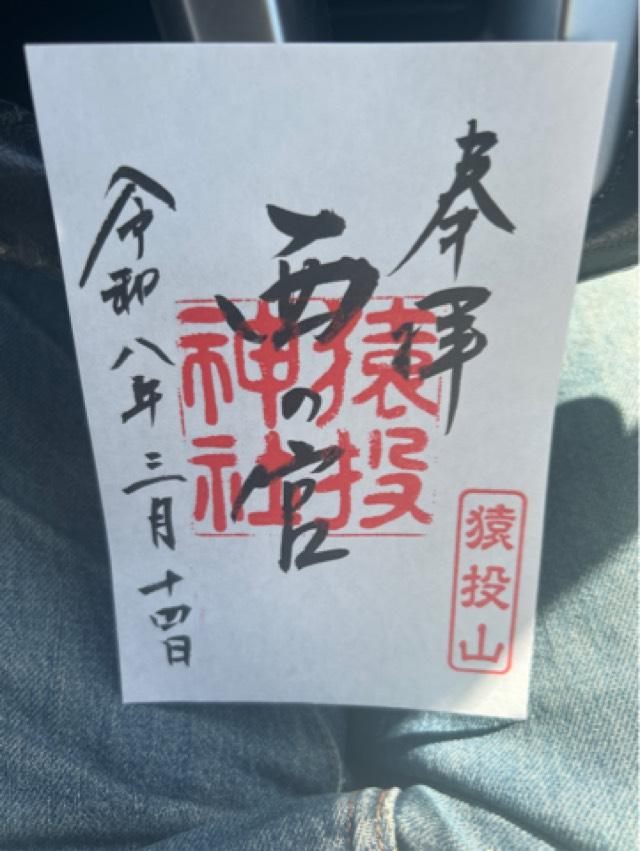 奉拝
猿投山
西の宮
猿投神社
令和八年三月十四日